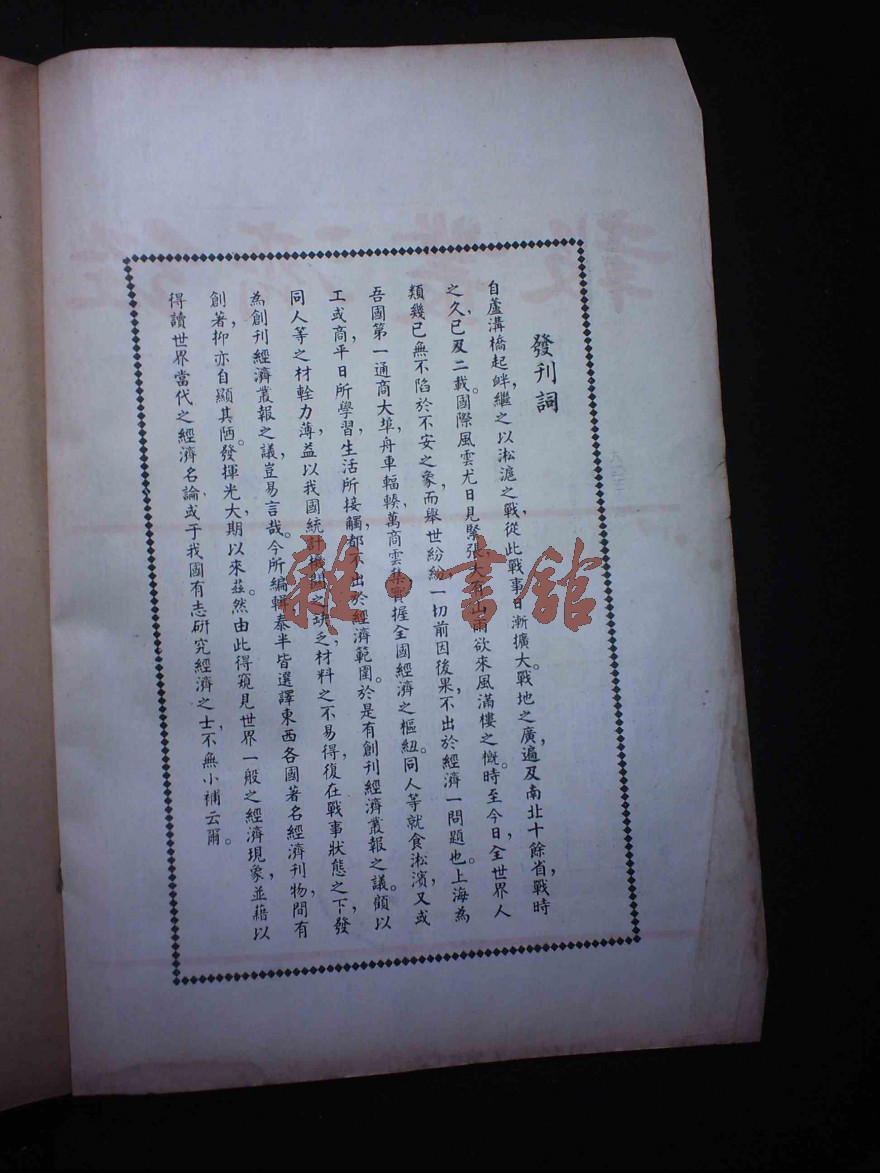 發刊詞
自蘆溝橋起衅，繼之以淞滬之戰，從此戰事日漸擴大。戰地之廣，遍及南北十餘省，戰時
之久，已及二載。國際風雲尤日見緊張，大有山雨欲來風滿樓之慨。時至今日，全世界人
類幾已無不陷於不安之象，而舉世紛紛，一切前因後果，不出於經濟一問題也。上海為
吾國第一通商大埠，舟車輻輳，萬商雲集，實握全國經濟之樞紐。同人等就食淞濱，又或
工或商，平日所學習，生活所接觸，都不出於經濟範圍。於是有創刊經濟叢報之議。顧以
同人等之材輇力薄，益以我國統計機關之缺乏，材料之不易得，復在戰事狀態之下，發
為創刊經濟叢報之議，豈易言哉。今所編輯，泰半皆選譯東西各國著名經濟刊物，間有
創著，抑亦自顯其陋。發揮光大，期以來茲。然由此得窺見世界一般之經濟現象，並藉以
得讀世界當代之經濟名論，或于我國有志研究經濟之士，不無小補云爾。
雜·書舘